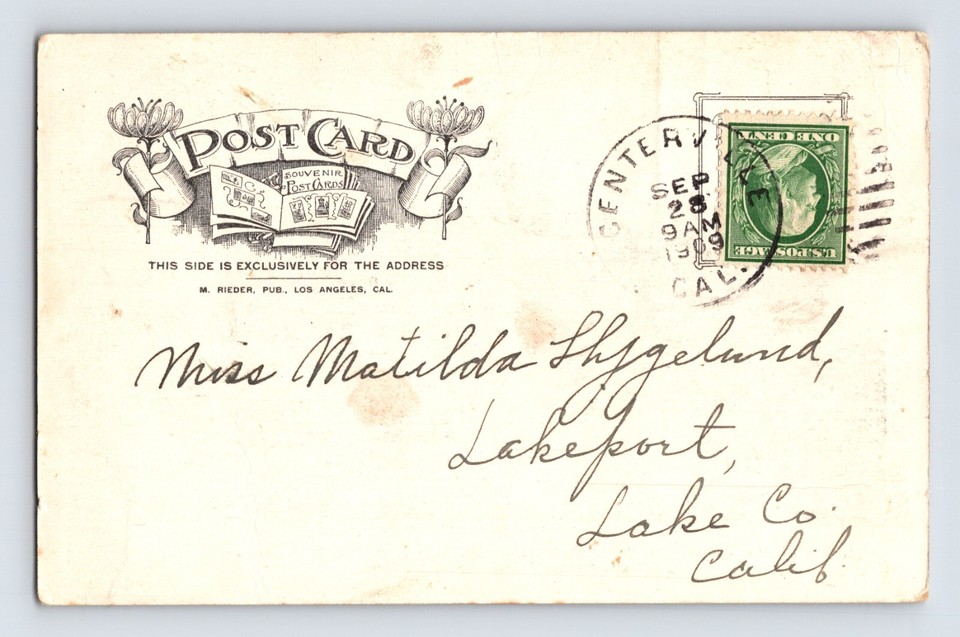 POST CARD
SOUVENIR
POST CARDS
THIS SIDE IS EXCLUSIVELY FOR THE ADDRESS
M. RIEDER, PUB., LOS ANGELES, CAL.
CENTERVILLE
SEP
28
9AM
1909
CAL.
ONE CENT
U.S. POSTAGE
Miss Matilda
Lakeport,
Lake Co.
Calif.